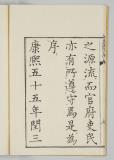 之源流而官府吏民
亦有所遵守焉是為
序
康熙五十五年閏三